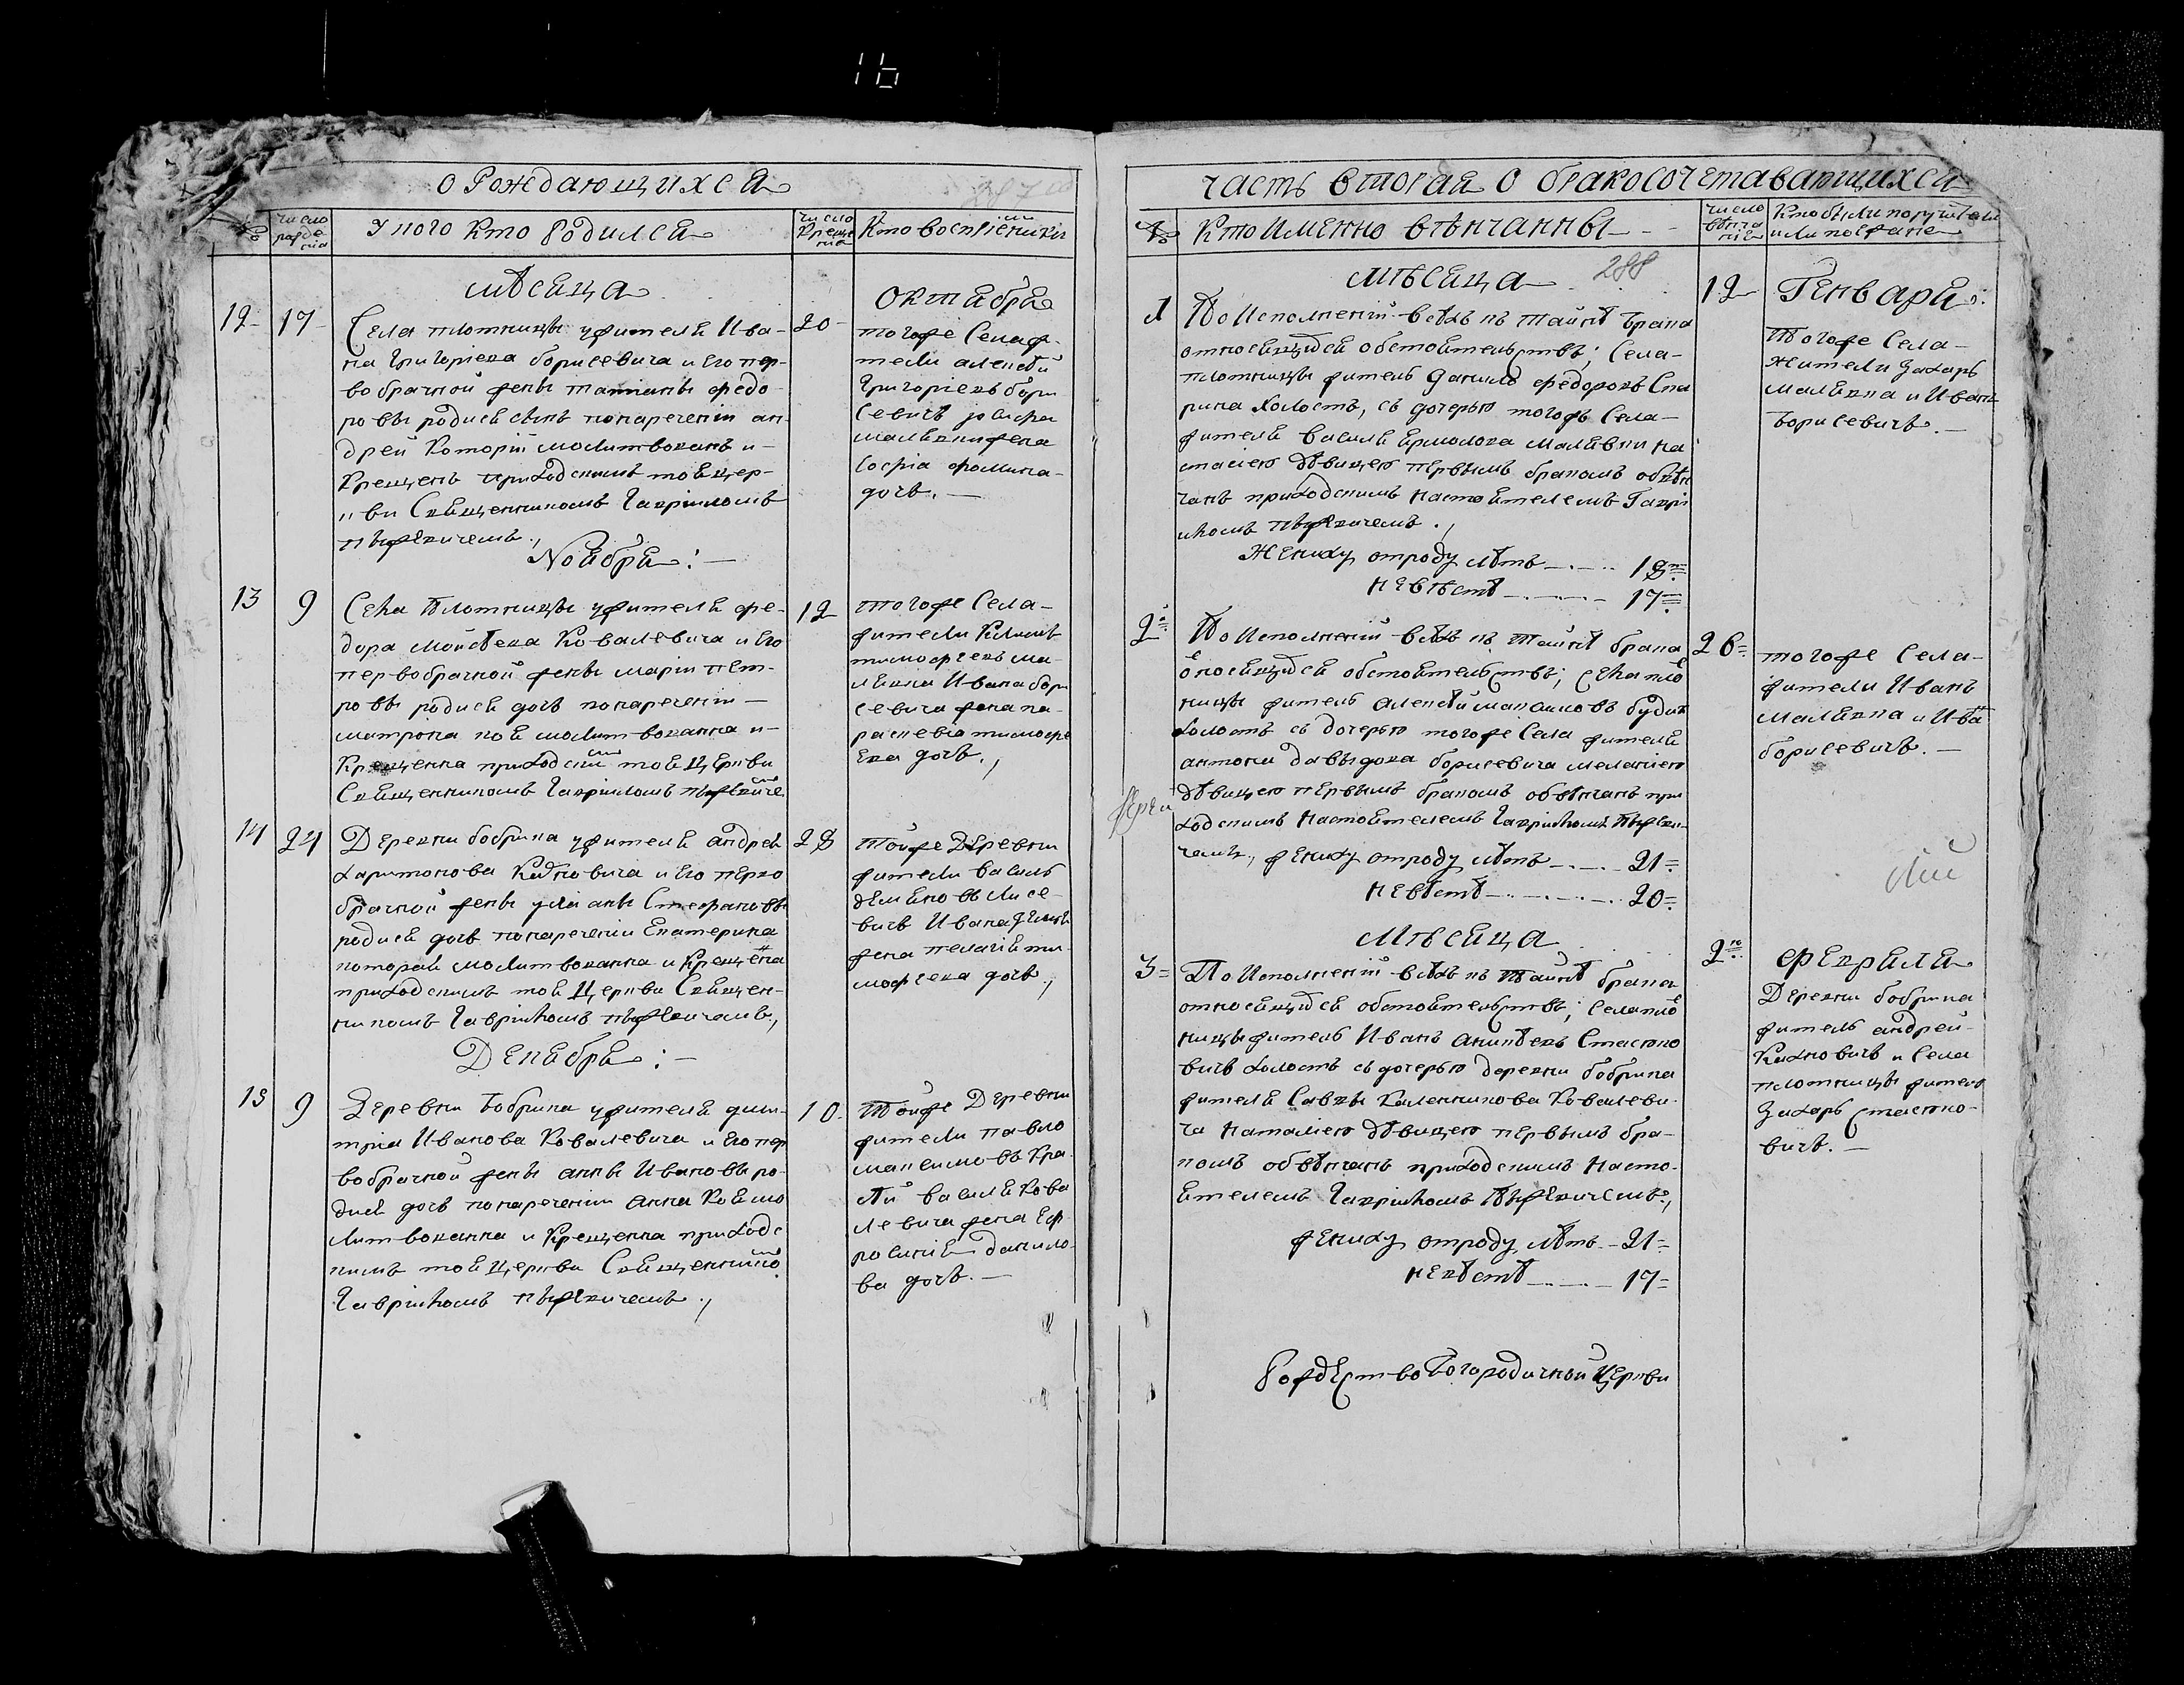 16
О Рождающихся
№
число рожде нія
У кого кто родился
число Креще нія
Кто воспріемники
мѣсяца
Октября
12 17
Села плотницы ужителя Ива-
на Григоріева борисевича и Его пер-
вобрачной жены татіаны федо-
ровы родися сынъ понареченіи ан-
дрей Которій молитвованъ и
Крещенъ приходскимъ тоя цер-
кви Священникомъ Гавріиломъ
20
тогоже Села ж-
тели алексѣй
Григоріевъ бори
севичъ
малевки жена
Софіа фомина
дочь.
Ноября:
13 9
Села Плотницы ужителя фе-
дора Мойсѣева Ковалевича и Его
первобрачной жены маріи пет-
ровы родися дочь понареченіи
матрона коя молитвованна и
Крещенна приходским тоя Церкви
Священникомъ Гавріиломъ
12
тогоже Села
жители Климъ
тимофеевъ ма-
левка Ивана бори
севича жена па-
раскевіа тимофе
Ева дочь.,
14 24
Деревни бобрика ужителя андрея
харитонова и Его перво
брачной жены уліаны Стефановы
родися дочь понареченіи Екатерина
которая молитвованна и Крещена
приходскимъ тоя Церкви Священ-
никомъ Гавріиломъ
28
Тойже Деревни
жители василь
демяновъ лисе-
вичъ Ивана
жена пелагія ти-
мофеева дочь.,
Декабря:
15 9
Деревни Бобрика ужителя дми-
тріа Иванова Ковалевича и Его пер
вобрачной жены анны Ивановы ро-
дися дочь понареченіи анна Коя мо
литвованна и Крещенна приходс
кимъ тоя Церкви Священником
Гавріиломъ
10
Тойже Деревни
жители павло
максимовъ Кра-
василя Кова
левича жена Еф
росинія данило-
ва дочь.
часть вторая О бракосочетавающихся
№
Кто Именно вѣнчанны
число вѣнча нія
Кто были поручители или поезжане
мѣсяца
288
Генваря:
1
По Исполненіи всѣхъ къ тайнѣ брака
относящихся обстоятельствъ; Села
плотницы житель данило федоровъ
холостъ, съ дочерью тогожъ Села
жителя василя Ермолова Малевки на
стасіею дѣвицею первымъ бракомъ обвѣн
чанъ приходскимъ настоятелемъ Гаврі
иломъ
Жениху отроду лѣтъ 18
невѣстѣ 17
12
Тогоже Села
жители Захарь
малевка и Иванъ
Борисевичъ.
2
По Исполненіи всѣхъ къ Тайнѣ брака
относящихся обстоятельствъ; Села пло
ницы житель алексѣй будик
холостъ съ дочерью тогоже Села жителя
антона давыдова борисевича меланіею
дѣвицею первымъ бракомъ обвѣнчанъ при
ходскимъ настоятелемъ Гавріиломъ
жениху отроду лѣтъ 21
невѣстѣ 20
26
тогоже Села
жители Иванъ
малевка и Ива
борисевичъ.
Мѣсяца
Февраля
3
По Исполненіи всѣхъ къ Тайнѣ брака
относящихся обстоятельствъ; Села пло
ницы житель Иванъ
вичъ холостъ съ дочерью деревни бобрика
жителя Савы Каленникова Ковалеви-
ча наталіею дѣвицею первымъ бра-
комъ обвѣнчанъ приходскимъ насто-
ятелемъ Гавріиломъ
жениху отроду лѣтъ 21
невѣстѣ 17
2
Деревни бобрика
житель андрей
и Села
плотницы житель
Захарь
вичъ.
Рождество Богородичной Церкви